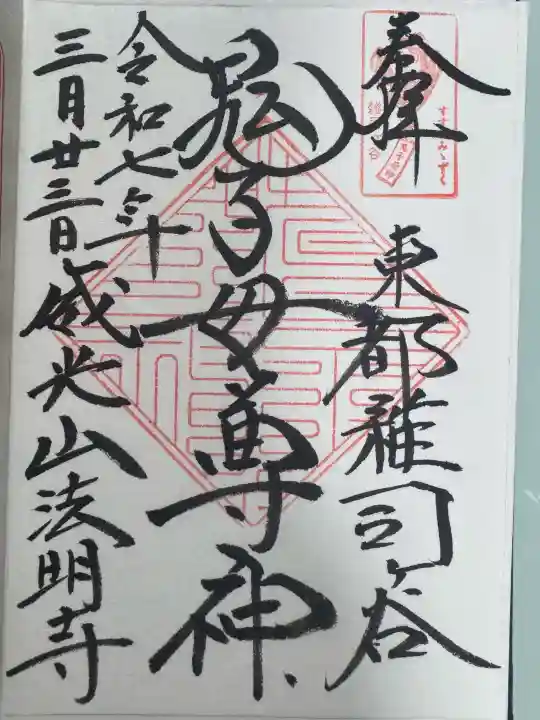 奉拝
東都雑司ヶ谷
鬼子母尊神
令和七年
三月廿三日
威光山法明寺
すすきみゝずく